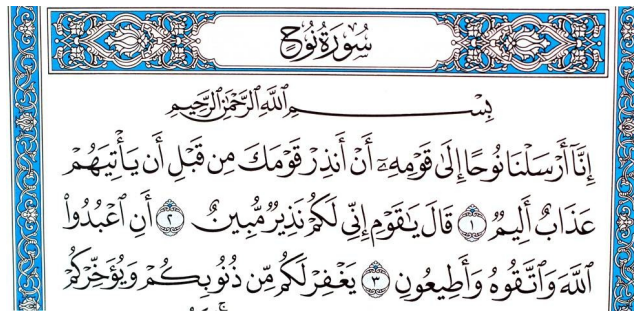 سُورَةُ نُوحٍ
بِسْمِ اللَّهِ الرَّحْمَٰنِ الرَّحِيمِ
إِنَّآ أَرْسَلْنَا نُوحًا إِلَىٰ قَوْمِهِۦٓ أَنْ أَنذِرْ قَوْمَكَ مِن قَبْلِ أَن يَأْتِيَهُمْ
عَذَابٌ أَلِيمٌ ١ قَالَ يَٰقَوْمِ إِنِّي لَكُمْ نَذِيرٌ مُّبِينٌ ٢ أَنِ اعْبُدُوا۟
اللَّهَ وَاتَّقُوهُ وَأَطِيعُونِ ٣ يَغْفِرْ لَكُم مِّن ذُنُوبِكُمْ وَيُؤَخِّرْكُمْ